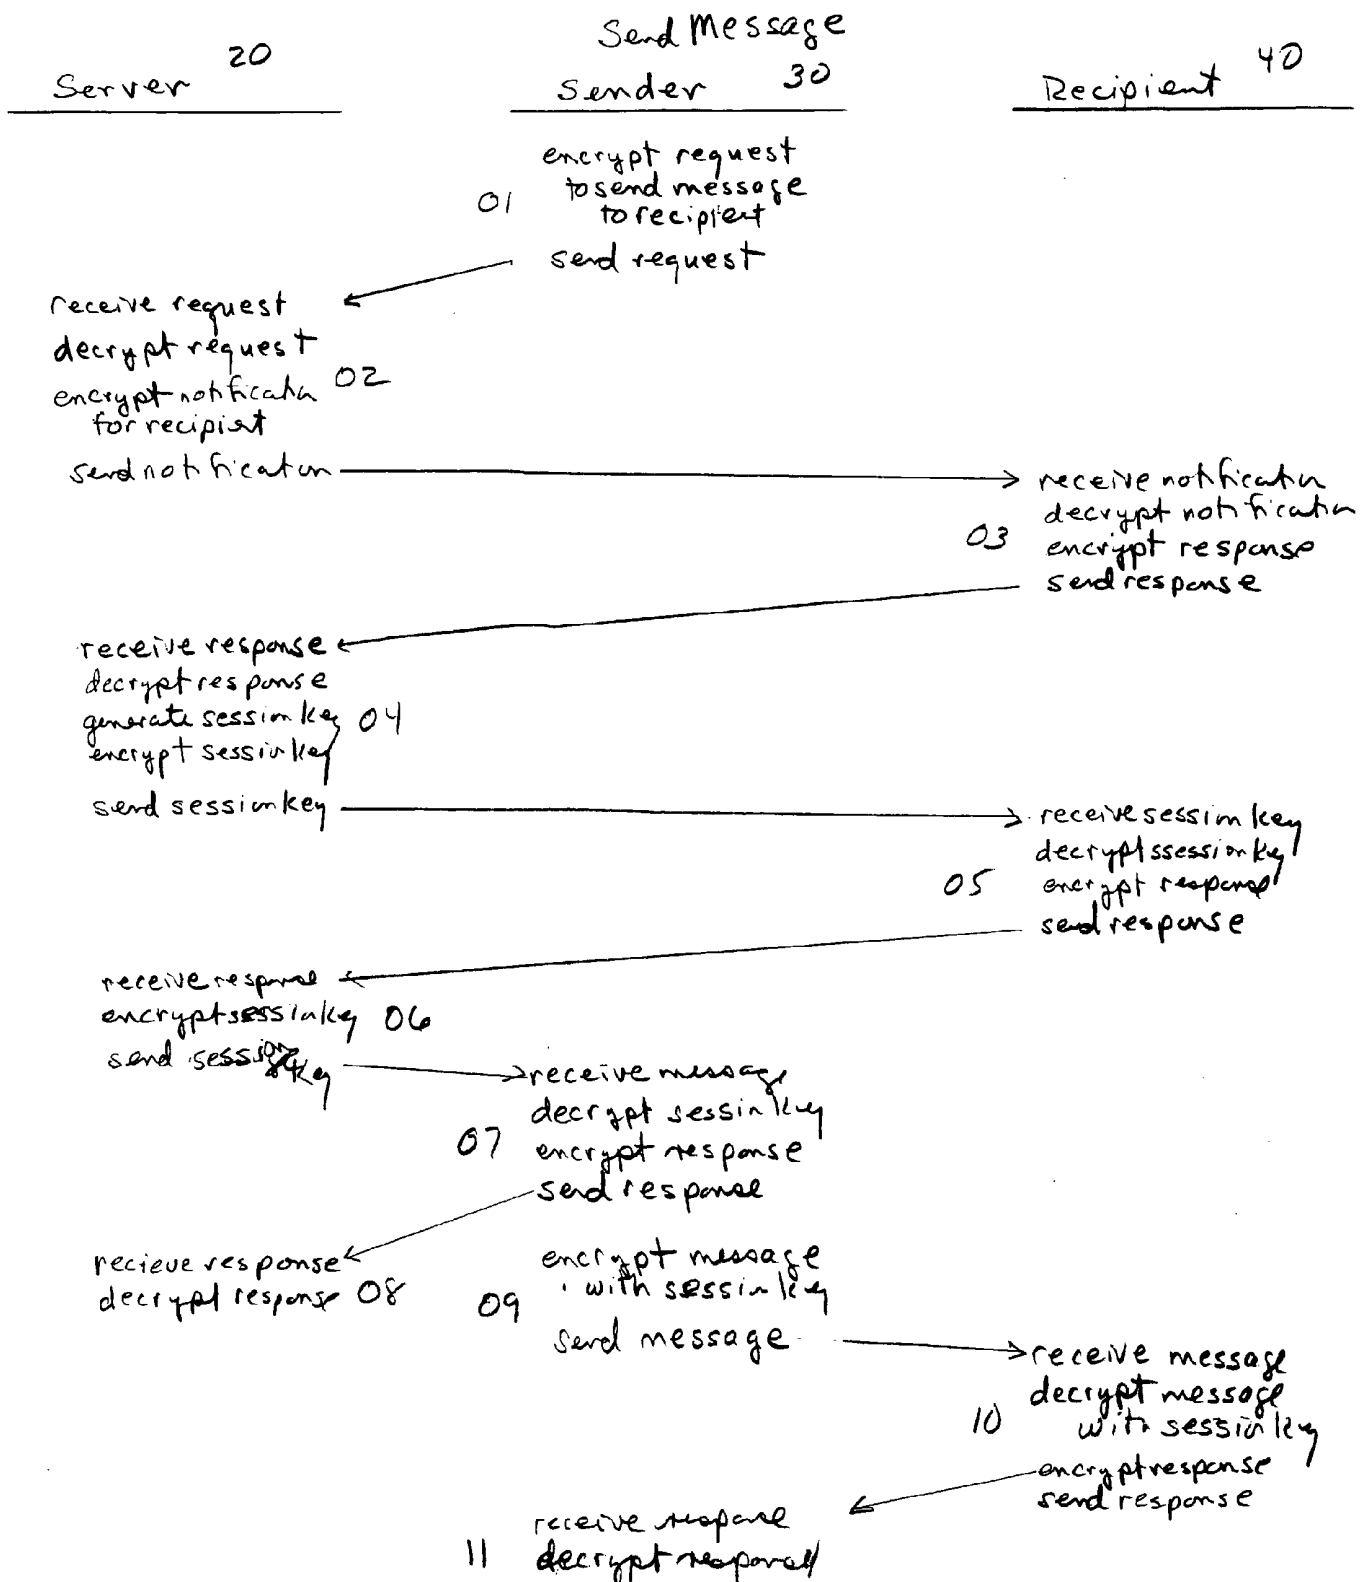 Send Message
Server 20
Sender 30
Recipient 40
encrypt request
to send message
01
to recipient
send request
receive request
decrypt request
encrypt notification 02
for recipient
send notification
receive notification
decrypt notification
03 encrypt response
send response
receive response
decrypt response
generate session key 04
encrypt session key
send session key
receive session key
decrypt ssession key
05 encrypt response
send response
receive response
encrypt session key 06
send session key
receive message
decrypt session key
07 encrypt response
send response
recieve response
decrypt response 08
encrypt message
with session key
09
send message
receive message
decrypt message
10 with session key
encrypt response
send response
receive response
11 decrypt response